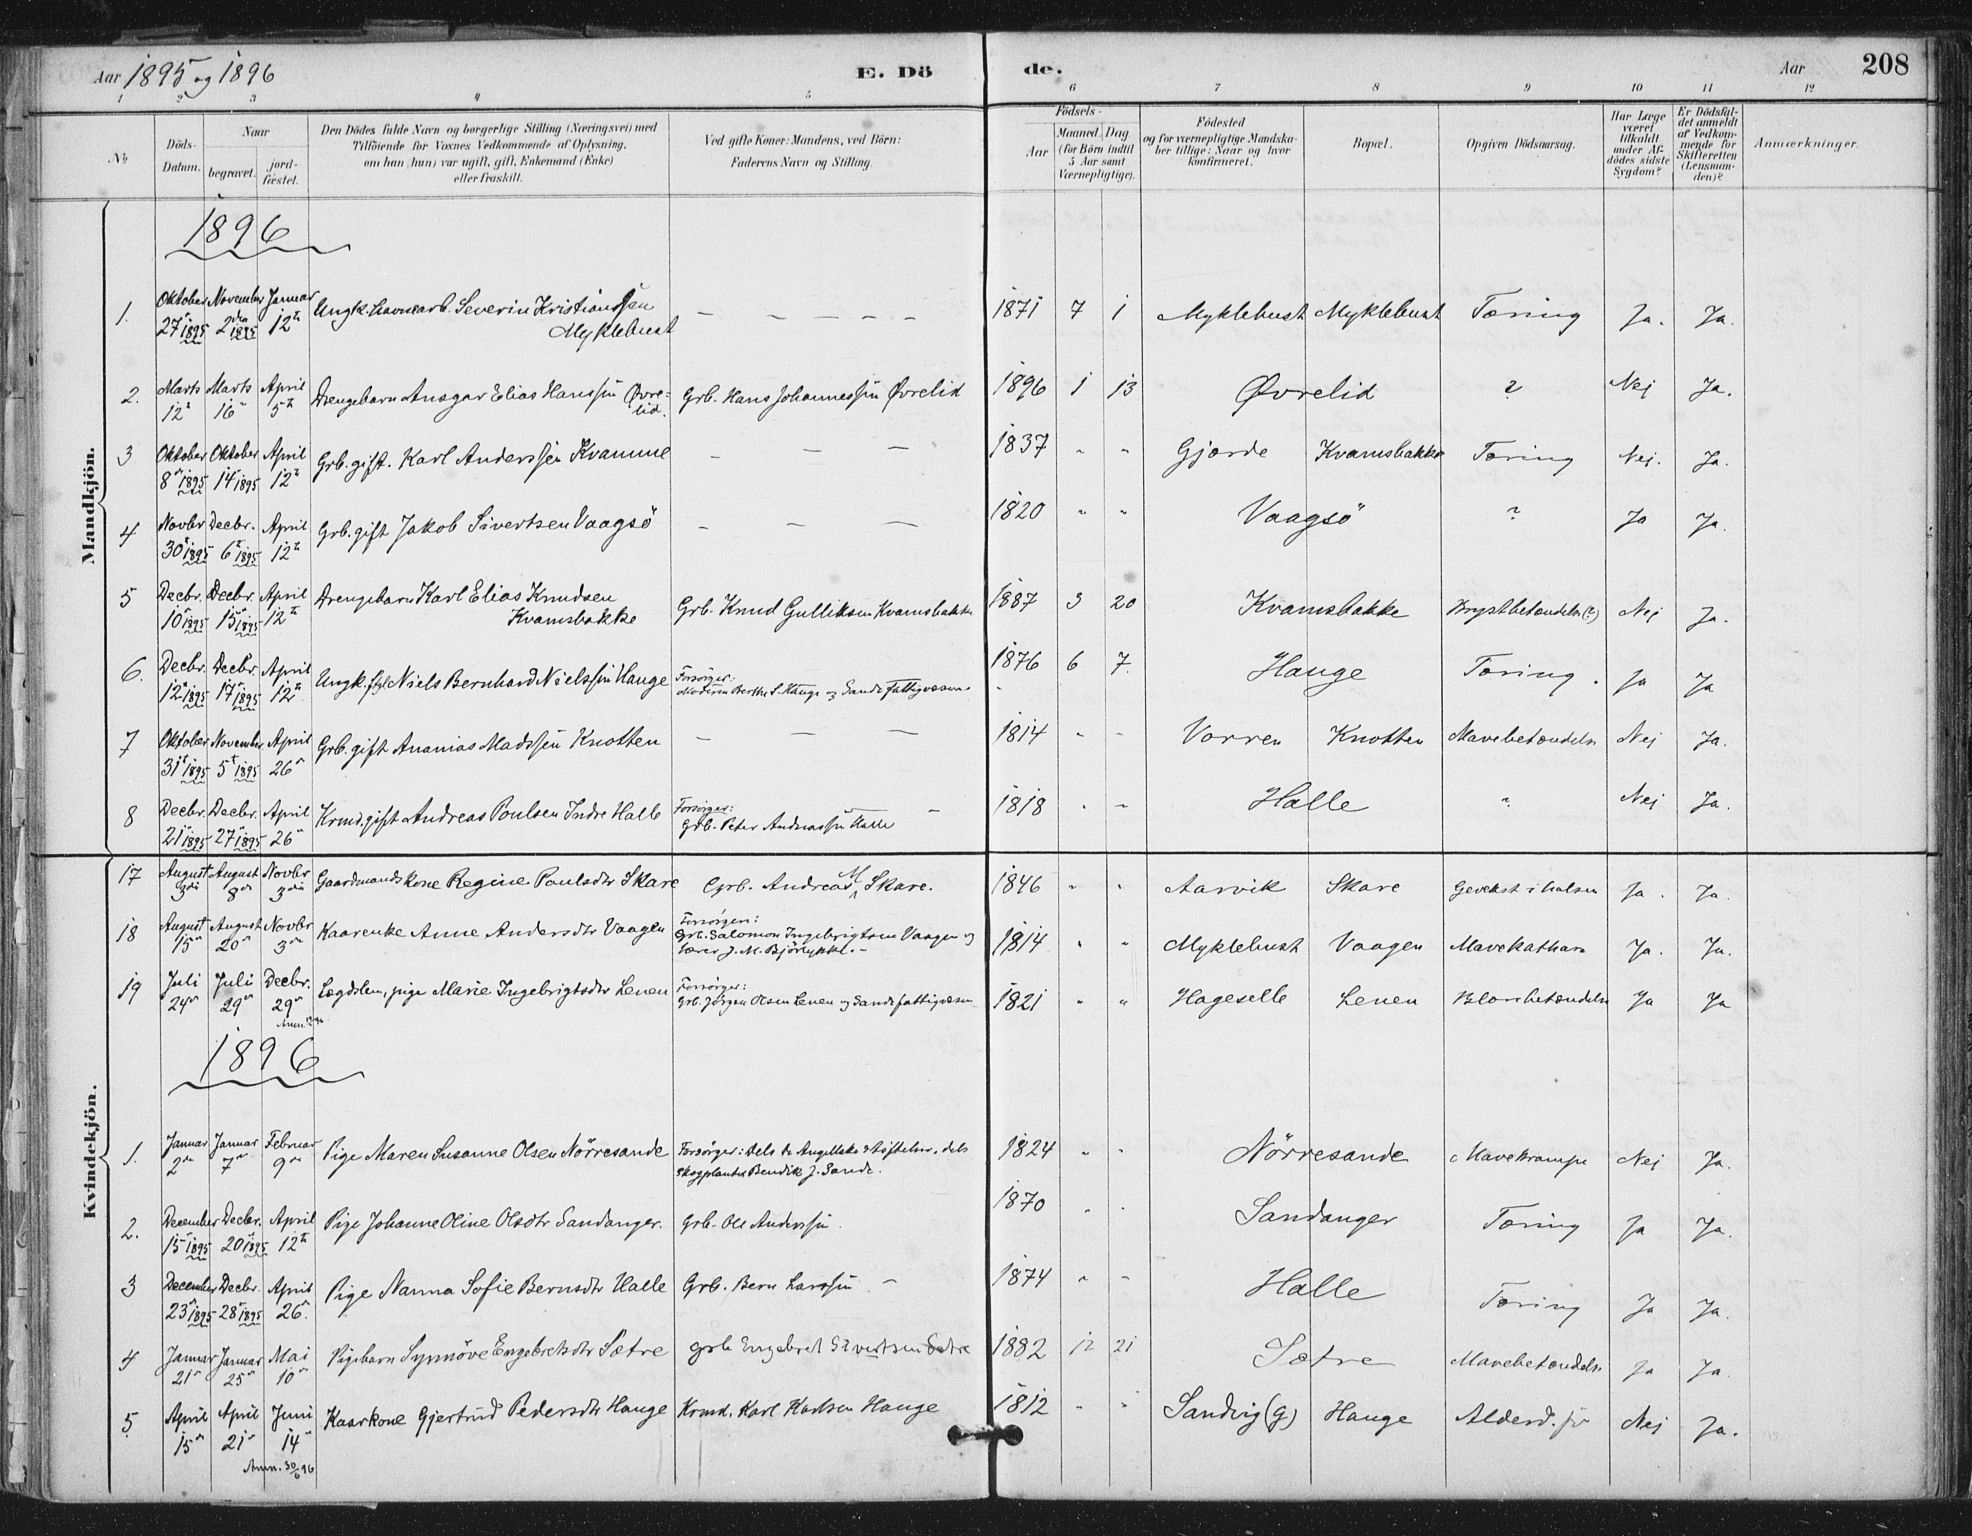 Aar 1895 og 1896 E. Dö de. Aar 208
1 2 3 4 5 6 7 8 9 10 11 12
No
Döds-Datum.
Naar
begravet.
jord-fæstet.
Den Dödes fulde Navn og borgerlige Stilling (Næringsvei) med
Tilföiende for Voxnes Vedkommende af Oplysning,
om han (hun) var ugift, gift, Enkemand (Enke)
eller fraskilt.
Ved gifte Koner: Mandens, ved Börn:
Faderens Navn og Stilling.
Födsels-
Aar Maaned. Dag
(for Börn indtil
5 Aar samt
Værnepligtige).
Födested
og for værnepligtige Mandska-
ber tillige: Naar og hvor
konfirmeret.
Bopæl.
Opgiven Dödsaarsag.
Har Læge
været
tilkaldt
under Af-
dödes sidste
Sygdom?
Er Dödsfal-
det anmeldt
af Vedkom-
mende for
Skifteretten
(Lensman-
den)?
Anmærkninger.
Mandkjön.
1896
1. Oktober November Januar Ungk. Severin Kristianssen — — — — — 1871 7 1 Myklebust Myklebust Tæring Ja. Ja.
27 1895 2den 1895 12te Myklebust
2. Marts Marts April Drengebarn Ansgar Elias Hanssen Øvre= Grb. Hans Johannessen Øvrelid 1896 1 13 Øvrelid ? Nej Ja.
12 16 5te lid.
3 Oktober Oktober April Grb. gift. Karl Anderssen Kvamme — — — 1837 " " Gjærde Kvamsbakke Tæring Nej. Ja.
8 1895 14 1895 12te
4 Novbr Decbr. April Grb. gift Jakob Sivertsen Vaagsö — — — 1820 " " Vaagsö ? Ja Ja.
30 1895 6te 1895 12te
5 Decbr. Decbr. April Drengebarn Karl Elias Knudsen Grb. Knud Gulliksen Kvamsbakke 1887 3 20 Kvamsbakke Brystbetændelse (?) Nej Ja.
10 1895 15 1895 12te Kvamsbakke
6. Decbr. Decbr. April Ungk. Niels Bernhard Nielssen Hauge Forsörger: 1876 6 7. Hauge Tæring. Ja Ja
12 1895 17 1895 12te Moderen Berthe S. Hauge og Sande Fattigvæsen
7 Oktober November April Grb. gift Ananias Madssen Knotten — — — 1814 " " Vorren Knotten Mavebetændelse Nej Ja.
31te 1895 5te 1895 26
8 Decbr. Decbr. April Krmd. gift Andreas Poulsen Indre Halle Forsörger: — 1818 " " Halle ? Nej Ja.
21 1895 27 1895 26 Grb. Peter Andreassen Halle
17 August August Novbr Gaardmandskone Regine Poulsdtr Skare Grb. Andreas M. Skare. 1846 " " Aarvik Skare Gevekst i halsen Ja. Ja.
3die 8de 3die
18 August August Novbr Kaarenke Anne Andersdtr Vaagen Forsörgere: 1814 " " Myklebust Vaagen Mavekathar Ja. Ja.
15 20 3 Grb. Salomon Ingebrigtsen Vaagen og
lærer J. M. Björlykke. —
19 Juli Juli Decbr. Lægdslem, pige Marie Ingebrigtsdtr Lenen Forsörger: 1821 " " Hageselle Lenen Blærebetændelse Ja Ja
24 29 29 Grb. Jörgen Olsen Lenen og Sande fattigvæsen
Kvindekjön.
1896
1. Januar Januar Februar Pige Maren Susanne Olsen Nörresande Forsörger: dels de Angellske Stiftelser, dels 1824 " " Nörresande Mavekrampe Nej Ja.
2 7 9 Skogplanter Bendik J. Sande.
2. December Decbr. April Pige Johanne Oline Olsdtr Sandanger. Grb. Ole Anderssen. 1870 " " Sandanger Tæring Ja Ja.
15 1895 20 1895 12te
3 December Decbr. April Pige Nanna Sofie Bernsdtr Halle Grb. Bern Larssen — 1874 " — Halle Tæring Ja Ja.
23 1895 28 1895 26.
4 Januar Januar Mai Pigebarn Synnöve Engebretsdtr Sætre grb Engebret Sivertsen Sætre 1882 12 21 Sætre Mavebetændelse Ja Ja.
21 25 10
5 April April Juni Kaarkone Gjertrud Pedersdtr Hauge Krmd. Karl Karlsen Hauge 1812 " " Sandvig (G) Hauge Alderd. Nej Ja.
15 21 14
Anm. 30/6 96